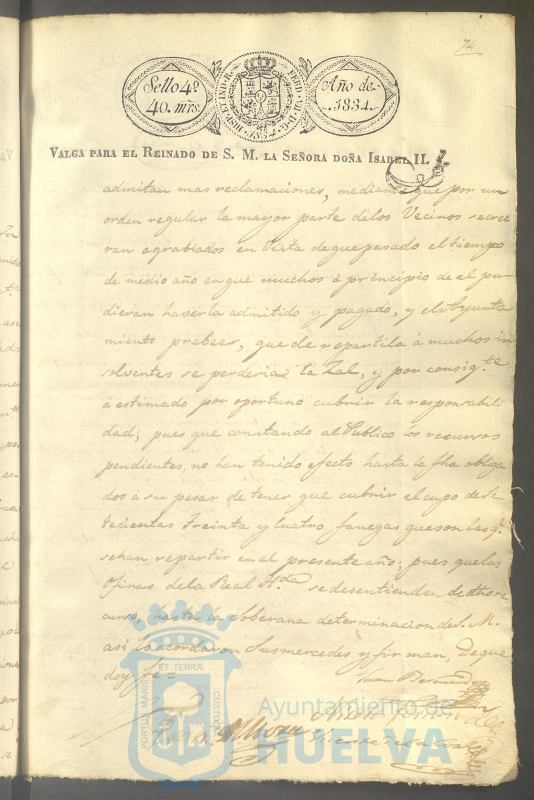 74
Sello 4º
40. mrs.
HISPANIARUM REX
FERD. VII. D. G.
Año de
1834.
VALGA PARA EL REINADO DE S. M. LA SEÑORA DOÑA ISABEL II.
admitan mas reclamaciones, mediante que por un
orden regular la mayor parte delos Vecinos se cree
ran agrabiados en Vista de que pasado el tiempo
de medio año en que muchos á principio de el pu-
dieran haverla admitido y pagado, y el Ayunta
miento prebeer, que de repartila á muchos in
solventes se perderia la Sal, y por consigte
á estimado por oportuno cubrir la responsabili
dad; pues que constando al Publico los recursos
pendientes, no han tenido efecto hasta la fha obliga
dos á su pesar de tener que cubrir el cupo de Se
tecientas Treinta y Cuatro fanegas que son las q.
sehan repartir en el presente año; pues quelas
Ofinas dela Real Hda se desentienden de dho re
curso, hasta la Soberana determinacion de S. M.
así lo acordaron Susmercedes y firman, Deque
doy fe =
Juan
PORTUS MARIS
ET TERRÆ
CUSTODIA
Ayuntamiento de
HUELVA